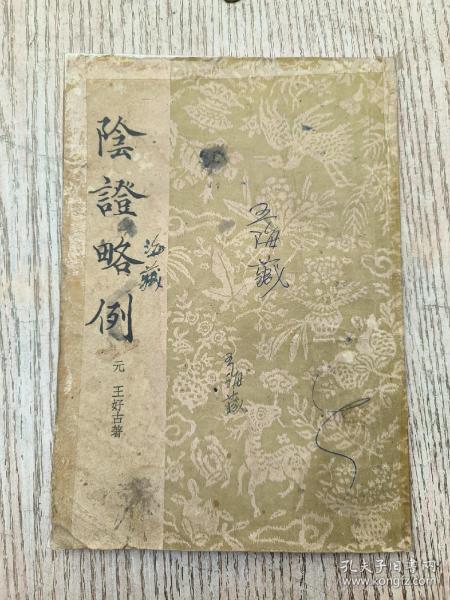 陰證略例
元 王好古著
海藏
王海藏
王海藏
孔夫子旧书网
www.kongfz.com